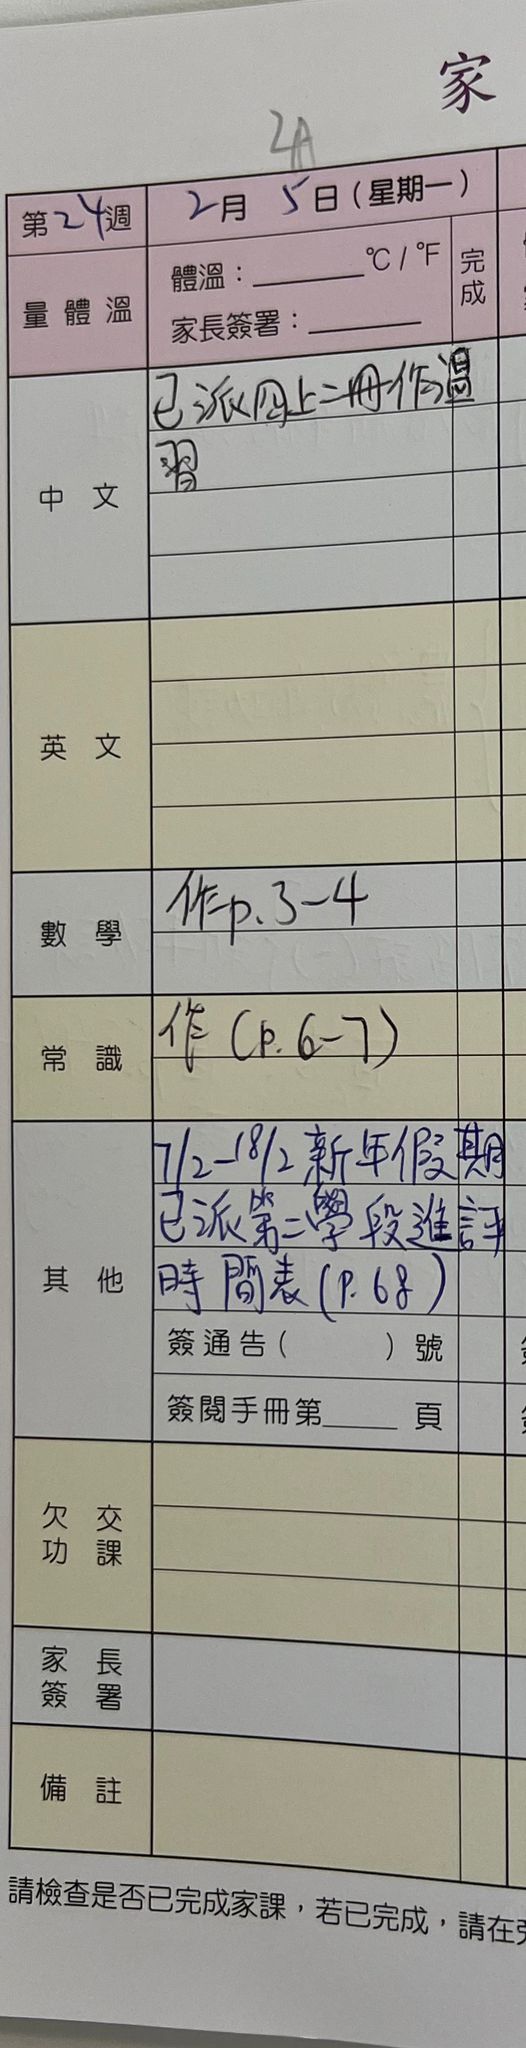 家
2A
第24週
2月5日(星期一)
量體溫
體溫：______°C / °F
家長簽署：______
完成
中文
已派四上二冊作溫
習
英文
數學
作p.3-4
常識
作(p.6-7)
其他
7/2-18/2新年假期
已派第二學段進評
時間表(p.68)
簽通告( )號
簽閱手冊第____頁
欠交
功課
家長
簽署
備註
請檢查是否已完成家課，若已完成，請在旁